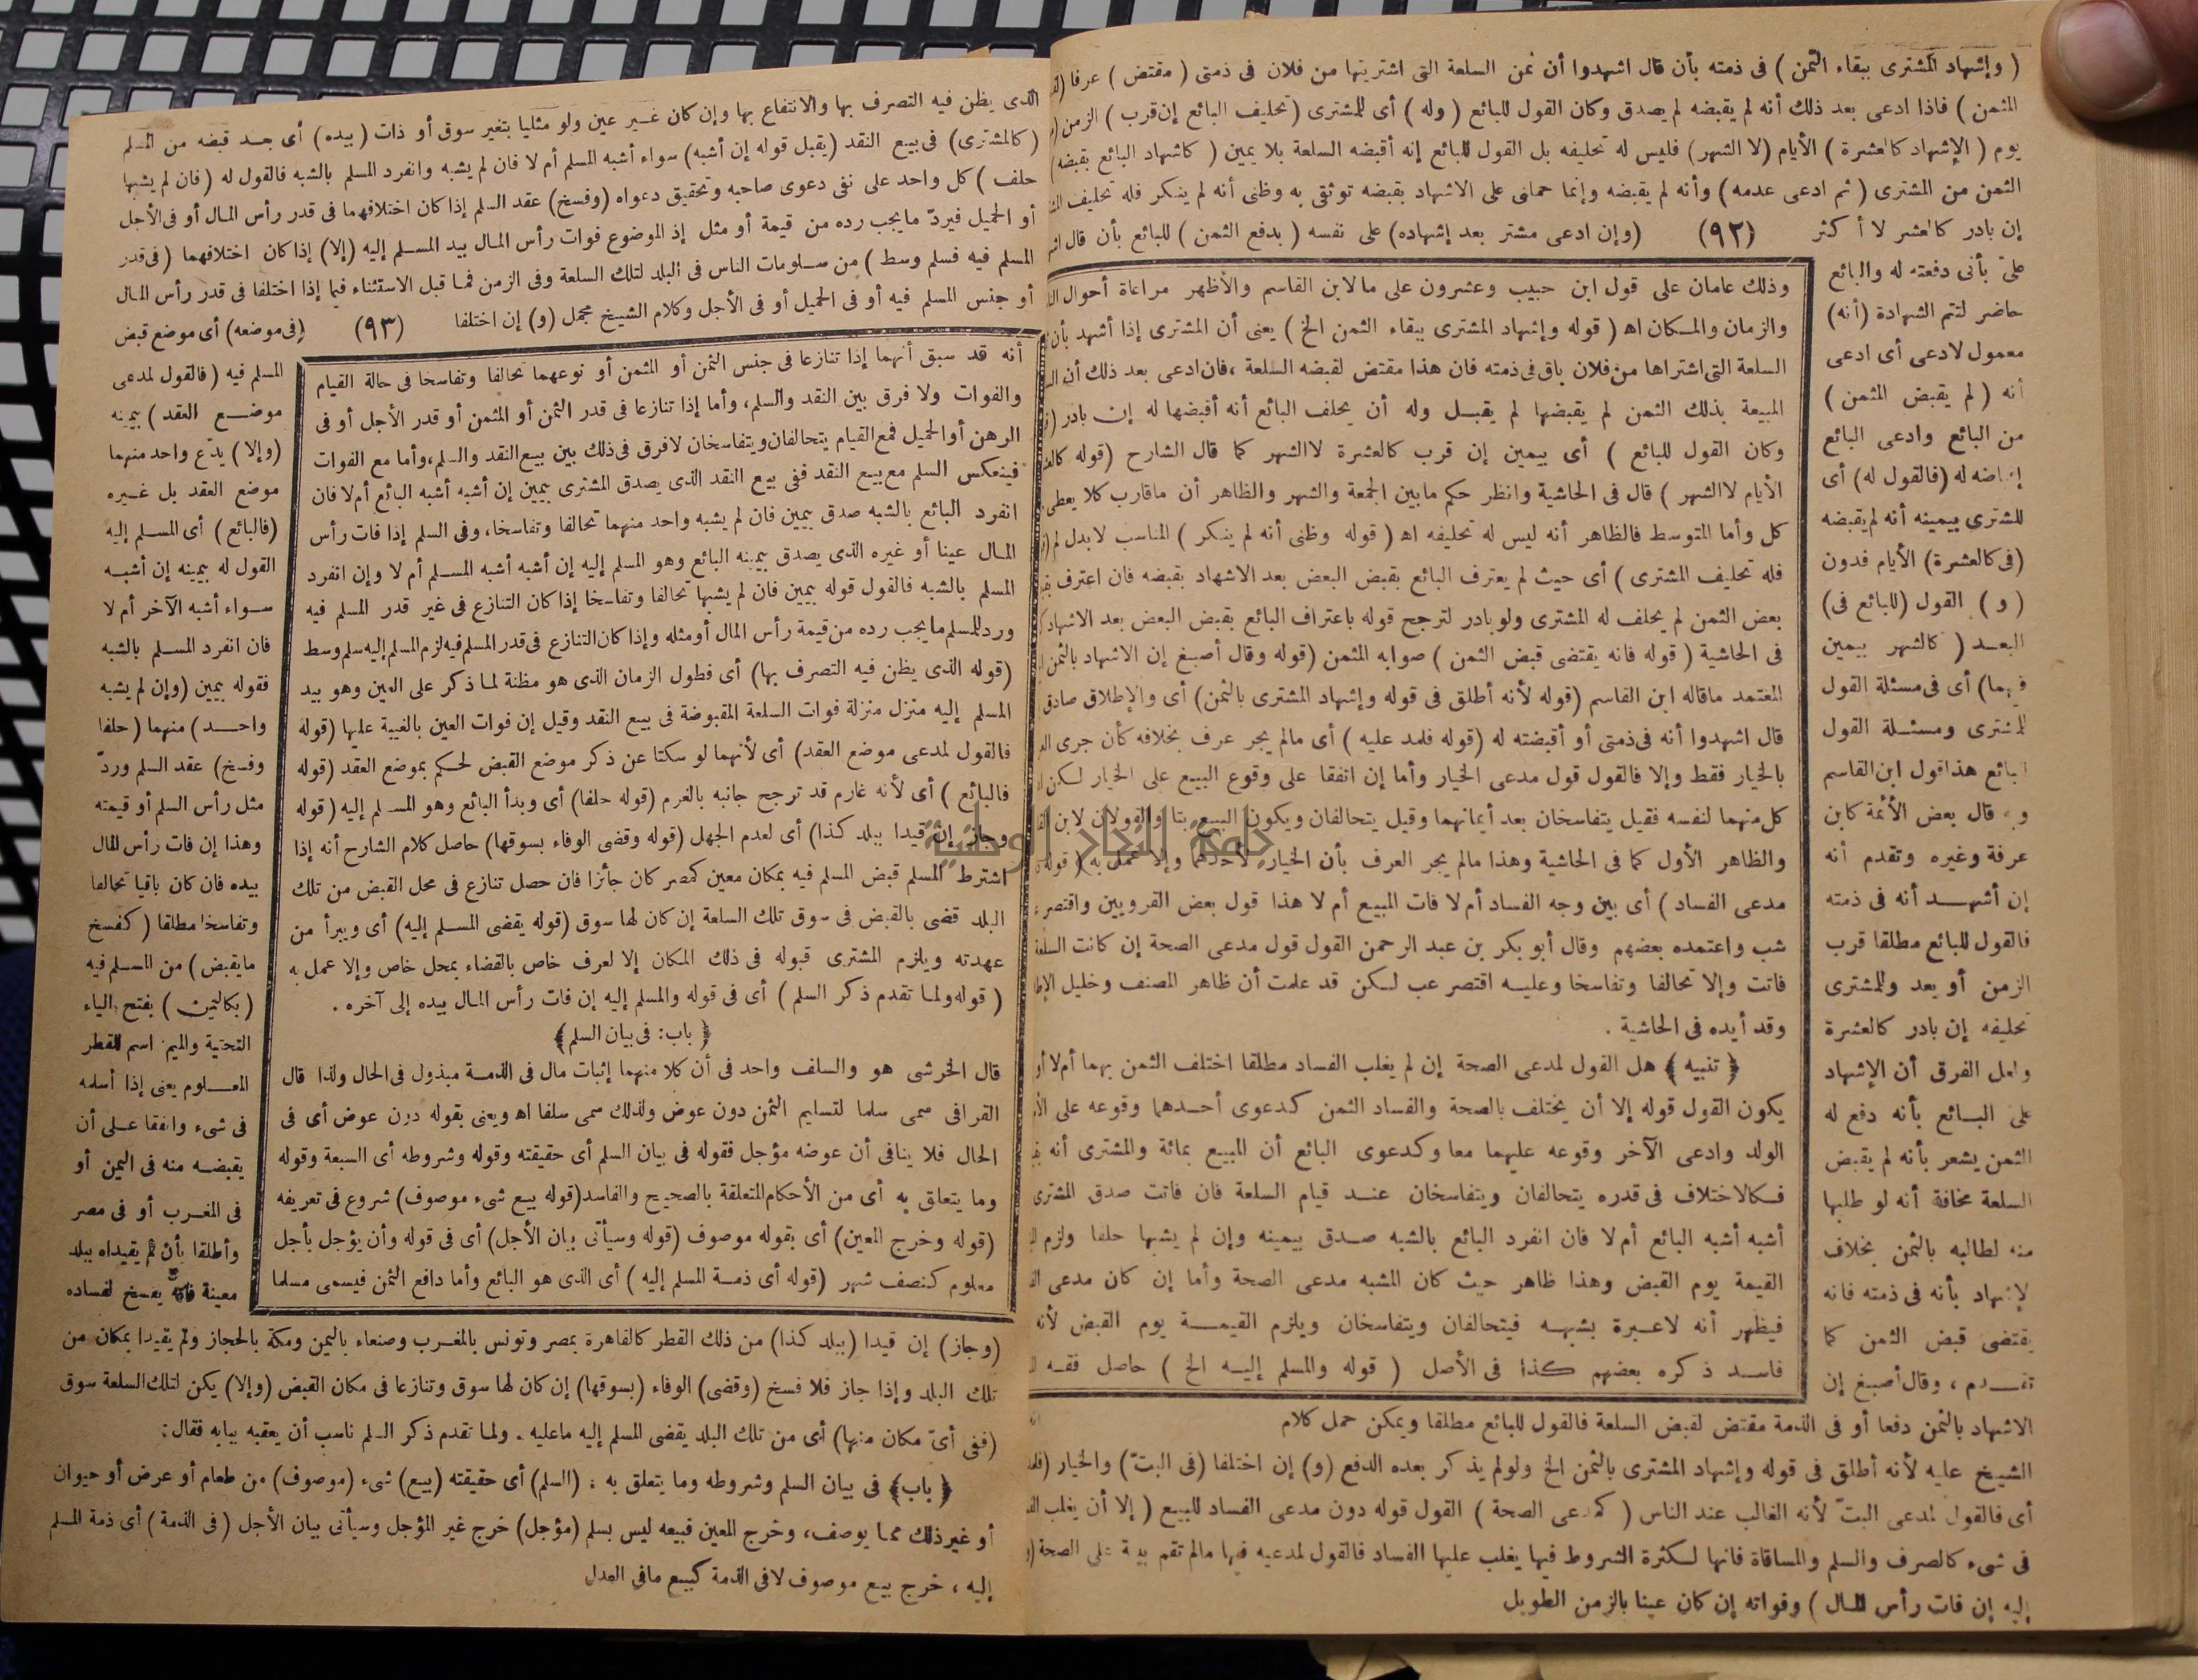 ( وإشهاد المشترى ببقاء الثمن ) فى ذمته بأن قال اشهدوا أن ثمن السلعة التى اشتريتها من فلان فى ذمتى ( مقتض ) عرفا
المثمن ) فاذا ادعى بعد ذلك أنه لم يقبضه لم يصدق وكان القول للبائع ( وله ) أى للمشترى ( تحليف البائع إن قرب ) الزمن
يوم ( الإشهاد كالعشرة ) الأيام ( لا الشهر ) فليس له تحليفه بل القول للبائع إنه أقبضه السلعة بلا يمين ( كاشهاد البائع بقبضه )
الثمن من المشترى ( ثم ادعى عدمه ) وأنه لم يقبضه وإنما حملنى على الاشهاد بقبضه توثقى به وظنى أنه لم ينكر فله تحليف
إن بادر كالعشر لا أكثر (٩٢) ( وإن ادعى مشتر بعد إشهاده ) على نفسه ( بدفع الثمن ) للبائع بأن قال
علىّ بأنى دفعته له والبائع
حاضر لتتم الشهادة ( أنه )
معمول لادعى أى ادعى
أنه ( لم يقبض المثمن )
من البائع وادعى البائع
إقباضه له ( فالقول له ) أى
للمشترى بيمينه أنه لم يقبضه
( فى كالعشرة ) الأيام فدون
( و ) القول ( للبائع فى )
البعـد ( كالشهر بيمين
فيهما ) أى فى مسئلة القول
للمشترى ومسئـلة القول
للبائع هذا قول ابن القاسم
وقال بعض الأئمة كابن
عرفة وغيره وتقدم أنه
إن أشهـد أنه فى ذمته
فالقول للبائع مطلقا قرب
الزمن أو بعد وللمشترى
تحليفه إن بادر كالعشرة
ولعل الفرق أن الإشهاد
على البائع بأنه دفع له
الثمن يشعر بأنه لم يقبض
السلعة مخافة أنه لو طلبها
منه لطالبه بالثمن بخلاف
الإشهاد بأنه فى ذمته فانه
يقتضى قبض الثمن كما
تقـدم ، وقال أصبغ إن
وذلك عامان على قول ابن حبيب وعشرون على ما لابن القاسم والأظهر مراعاة أحوال
والزمان والمـكان اه ( قوله وإشهاد المشترى ببقاء الثمن الخ ) يعنى أن المشترى إذا أشهد بأن
السلعة التى اشتراها من فلان باق فى ذمته فان هذا مقتض لقبضه السلعة ، فان ادعى بعد ذلك أن
المبيعة بذلك الثمن لم يقبضها لم يقبـل وله أن يحلف البائع أنه أقبضها له إن بادر
وكان القول للبائع ) أى بيمين إن قرب كالعشرة لا الشهر كما قال الشارح ( قوله
الأيام لا الشهر ) قال فى الحاشية وانظر حكم ما بين الجمعة والشهر والظاهر أن ما قارب كلا يعطى
كل وأما المتوسط فالظاهر أنه ليس له تحليفه اه ( قوله وظنى أنه لم ينكر ) المناسب لا بدل لم
فله تحليف المشترى ) أى حيث لم يعترف البائع بقبض البعض بعد الاشهاد بقبضه فان اعترف
بعض الثمن لم يحلف له المشترى ولو بادر لترجح قوله باعتراف البائع بقبض البعض بعد الاشهاد
فى الحاشية ( قوله فانه يقتضى قبض الثمن ) صوابه المثمن ( قوله وقال أصبغ إن الاشهاد بالثمن
المعتمد ما قاله ابن القاسم ( قوله لأنه أطلق فى قوله وإشهاد المشترى بالثمن ) أى والإطلاق صادق
قال اشهدوا أنه فى ذمتى أو أقبضته له ( قوله فلمد عليه ) أى مالم يجر عرف بخلافه كأن جرى
بالخيار فقط وإلا فالقول قول مدعى الخيار وأما إن اتفقا على وقوع البيع على الخيار لـكن
كل منهما لنفسه فقيل يتفاسخان بعد أيمانهما وقيل يتحالفان ويكون البيع بتا والقولان لابن
والظاهر الأول كما فى الحاشية وهذا مالم يجر العرف بأن الخيار لأحدهما وإلا عمل به ( قوله
مدعى الفساد ) أى بين وجه الفساد أم لا فات المبيع أم لا هذا قول بعض القرويين واقتصر
شب واعتمده بعضهم وقال أبو بكر بن عبد الرحمن القول قول مدعى الصحة إن كانت
فاتت وإلا تحالفا وتفاسخا وعليـه اقتصر عب لـكن قد علمت أن ظاهر المصنف وخليل
وقد أيده فى الحاشية .
﴿ تنبيه ﴾ هل القول لمدعى الصحة إن لم يغلب الفساد مطلقا اختلف الثمن بهما أم لا أو
يكون القول قوله إلا أن يختلف بالصحة والفساد الثمن كـدعوى أحـدهما وقوعه على
الولد وادعى الآخر وقوعه عليهما معا وكـدعوى البائع أن المبيع بمائة والمشترى أنه
فـكالاختلاف فى قدره يتحالفان ويتفاسخان عنـد قيام السلعة فان فاتت صدق المشترى
أشبه أشبه البائع أم لا فان انفرد البائع بالشبه صـدق بيمينه وإن لم يشبها حلفا ولزم
القيمة يوم القبض وهذا ظاهر حيث كان المشبه مدعى الصحة وأما إن كان مدعى
فيظهر أنه لا عـبرة بشبهـه فيتحالفان ويتفاسخان ويلزم القيمـة يوم القبض لأنه
فاسـد ذكره بعضهم كذا فى الأصل ( قوله والمسلم إليـه الخ ) حاصل فقـه
الاشهاد بالثمن دفعا أو فى الذمة مقتض لقبض السلعة فالقول للبائع مطلقا ويمكن حمل كلام
الشيخ عليه لأنه أطلق فى قوله وإشهاد المشترى بالثمن الخ ولو لم يذكر بعده الدفع ( و ) إن اختلفا ( فى البتّ ) والخيار
أى فالقول لمدعى البتّ لأنه الغالب عند الناس ( كمدعى الصحة ) القول قوله دون مدعى الفساد للبيع ( إلا أن يغلب
فى شىء كالصرف والسلم والمساقاة فانها لـكثرة الشروط فيها يغلب عليها الفساد فالقول لمدعيه فيها مالم تقم بينة على الصحة
إليه إن فات رأس المـال ) وفواته إن كان عينا بالزمن الطويل
الذى يظن فيه التصرف بها والانتفاع بها وإن كان غـير عين ولو مثليا بتغير سوق أو ذات ( بيده ) أى بعـد قبضه من المسلم
( كالمشترى ) فى بيع النقد ( يقبل قوله إن أشبه ) سواء أشبه المسلم أم لا فان لم يشبه وانفرد المسلم بالشبه فالقول له ( فان لم يشبها
حلف ) كل واحد على نفى دعوى صاحبه وتحقيق دعواه ( وفسخ ) عقد السلم إذا كان اختلافهما فى قدر رأس المـال أو فى الأجل
أو الحميل فيردّ ما يجب رده من قيمة أو مثل إذ الموضوع فوات رأس المـال بيد المسـلم إليه ( إلا ) إذا كان اختلافهما ( فى قدر
المسلم فيه فسلم وسط ) من سـلومات الناس فى البلد لتلك السلعة وفى الزمن فمـا قبل الاستثناء فيما إذا اختلفا فى قدر رأس المـال
أو جنس المسلم فيه أو فى الحميل أو فى الأجل وكلام الشيخ مجمل ( و ) إن اختلفا (٩٣) ( فى موضعه ) أى موضع قبض
المسلم فيه ( فالقول لمدعى
موضـع العقد ) بيمينه
( وإلا ) يدّع واحد منهما
موضع العقد بل غـيره
( فالبائع ) أى المسـلم إليه
القول له بيمينه إن أشبـه
سـواء أشبه الآخر أم لا
فان انفرد المسـلم بالشبه
فقوله بيمين ( وإن لم يشبه
واحـد ) منهما ( حلفا
وفسخ ) عقد السلم وردّ
مثل رأس السلم أو قيمته
وهذا إن فات رأس المال
بيده فان كان باقيا تحالفا
وتفاسخا مطلقا ( كفسخ
ما يقبض ) من المسـلم فيه
( بكاليمن ) بفتح الياء
التحتية والميم اسم للقطر
المعـلوم يعنى إذا أسلمه
فى شىء واتفقا على أن
يقبضـه منه فى اليمن أو
فى المغـرب أو فى مصر
وأطلقا بأن لم يقيداه ببلد
معينة فانه يفسخ لفساده
أنه قد سبق أنهما إذا تنازعا فى جنس الثمن أو المثمن أو نوعهما تحالفا وتفاسخا فى حالة القيام
والفوات ولا فرق بين النقد والسلم ، وأما إذا تنازعا فى قدر الثمن أو المثمن أو قدر الأجل أو فى
الرهن أو الحميل فمع القيام يتحالفان ويتفاسخان لا فرق فى ذلك بين بيع النقد والسلم ، وأما مع الفوات
فينعكس السلم مع بيع النقد ففى بيع النقد الذى يصدق المشترى بيمين إن أشبه أشبه البائع أم لا فان
انفرد البائع بالشبه صدق بيمين فان لم يشبه واحد منهما تحالفا وتفاسخا ، وفى السلم إذا فات رأس
المـال عينا أو غيره الذى يصدق بيمينه البائع وهو المسلم إليه إن أشبه أشبه المسـلم أم لا وإن انفرد
المسلم بالشبه فالقول قوله بيمين فان لم يشبها تحالفا وتفاسخا إذا كان التنازع فى غير قدر المسلم فيه
ورد للمسلم ما يجب رده من قيمة رأس المال أو مثله وإذا كان التنازع فى قدر المسلم فيه لزم المسلم إليه سلم وسط
( قوله الذى يظن فيه التصرف بها ) أى فطول الزمان الذى هو مظنة لمـا ذكر على العين وهو بيد
المسلم إليه منزل منزلة فوات السلعة المقبوضة فى بيع النقد وقيل إن فوات العين بالغيبة عليها ( قوله
فالقول لمدعى موضع العقد ) أى لأنهما لو سكتا عن ذكر موضع القبض لحـكم بموضع العقد ( قوله
فالبائع ) أى لأنه غارم قد ترجح جانبه بالغرم ( قوله حلفا ) أى وبدأ البائع وهو المسـلم إليه ( قوله
وجاز إن قيدا ببلد كذا ) أى لعدم الجهل ( قوله وقضى الوفاء بسوقها ) حاصل كلام الشارح أنه إذا
اشترط المسلم قبض المسلم فيه بمكان معين كمصر كان جائزا فان حصل تنازع فى محل القبض من تلك
البلد قضى بالقبض فى سوق تلك السلعة إن كان لها سوق ( قوله يقضى المسـلم إليه ) أى ويبرأ من
عهدته ويلزم المشترى قبوله فى ذلك المكان إلا لعرف خاص بالقضاء بمحل خاص وإلا عمل به
( قوله ولمـا تقدم ذكر السلم ) أى فى قوله والمسلم إليه إن فات رأس المـال بيده إلى آخره .
﴿ باب : فى بيان السلم ﴾
قال الخرشى هو والسلف واحد فى أن كلا منهما إثبات مال فى الذمـة مبذول فى الحال ولذا قال
القرافى سمى سلما لتسليم الثمن دون عوض ولذلك سمى سلفا اه ويعنى بقوله دون عوض أى فى
الحال فلا ينافى أن عوضه مؤجل فقوله فى بيان السلم أى حقيقته وقوله وشروطه أى السبعة وقوله
وما يتعلق به أى من الأحكام المتعلقة بالصحيح والفاسد ( قوله بيع شىء موصوف ) شروع فى تعريفه
( قوله وخرج المعين ) أى بقوله موصوف ( قوله وسيأتى بيان الأجل ) أى فى قوله وأن يؤجل بأجل
معلوم كـنصف شهر ( قوله أى ذمـة المسلم إليه ) أى الذى هو البائع وأما دافع الثمن فيسمى مسلما
( وجاز ) إن قيدا ( ببلد كذا ) من ذلك القطر كالقاهرة بمصر وتونس بالمغـرب وصنعاء باليمن ومكة بالحجاز ولم يقيدا بمكان من
تلك البلد وإذا جاز فلا فسخ ( وقضى ) الوفاء ( بسوقها ) إن كان لها سوق وتنازعا فى مكان القبض ( وإلا ) يكن لتلك السلعة سوق
( ففى أىّ مكان منها ) أى من تلك البلد يقضى المسلم إليه ما عليه . ولمـا تقدم ذكر السلم ناسب أن يعقبه ببابه فقال :
﴿ باب ﴾ فى بيان السلم وشروطه وما يتعلق به : ( السلم ) أى حقيقته ( بيع ) شىء ( موصوف ) من طعام أو عرض أو حيوان
أو غير ذلك ممـا يوصف ، وخرج المعين فبيعه ليس بسلم ( مؤجل ) خرج غير المؤجل وسيأتى بيان الأجل ( فى الذمة ) أى ذمة المسلم
إليه ، خرج بيع موصوف لا فى الذمة كبيع ما فى العدل